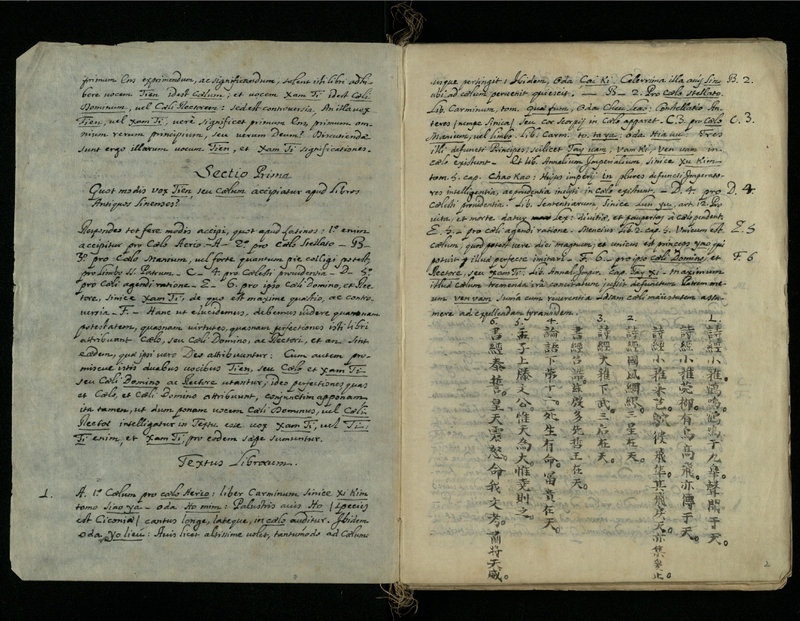 primum Ens exprimendum, ac significandum, solent isti libri adhi-
bere vocem Tien idest Cœlum; et vocem Xam Ti idest Cœli
Dominum, vel Cœli Rectorem: sed est controversia, An illa vox
Tien, vel Xam Ti, verè significet primum Ens, primum om-
nium rerum principium, seu verum Deum? Discutiendæ
sunt ergo illarum vocum Tien, et Xam Ti significationes.
Sectio Prima
Quot modis vox Tien, seu Cœlum accipiatur apud Libros
Antiquos Sinenses?
Respondeo tot fere modis accipi, quot apud Latinos: 1º enim
accipitur pro Cœlo Aereo - A - 2º pro Cœlo Stellato - B -
3º pro Cœlo Manium, vel forte quantum pie colligi potest,
pro limbo SS. Patrum - C - 4º pro Cœlesti providentia - D - 5º
pro Cœli agendi ratione - E - 6. pro ipso Cœli Domino, et Rec-
tore, Sinice Xam Ti, de quo est maxime quæstio, ac contro-
versia - F - Hanc ut elucidemus, debemus videre quamnam
potestatem, quasnam virtutes, quasnam perfectiones isti libri
attribuant Cœlo, seu Cœli Domino, ac Rectori, et an sint
eædem, quæ ipsi vero Deo attribuuntur: Cum autem pro-
miscue istis duabus vocibus Tien, seu Cœlo et Xam Ti
seu Cœli Domino ac Rectore utantur; ideo perfectiones quas
et Cœlo, et Cœli Domino attribuunt, conjunctim apponam
ita tamen, ut dum ponam vocem Cœli Dominus, vel Cœli
Rector intelligatur in Textu esse vox Xam Ti, vel Ti:
Ti enim, et Xam Ti, pro eodem sæpe sumuntur.
Textus Librorum.
1. A. 1º Cœlum pro cœlo Aereo: liber Carminum Sinice Xi Kim
tomo Siao ya - oda Ho mim: Palustris avis Ho (species
est Ciconiæ) cantus longe, lateque, in cœlo auditur. Ibidem
Oda yo lieu: Avis licet altissime volet, tantummodo ad Cœlum
usque pertingit: Ibidem, Oda Cai Ki. Celerrima illa avis Sin
ubi ad Cœlum pervenit quiescit; — B - 2. Pro Cœlo Stellato. B. 2.
Lib. Carminum, tom. Que fum, Oda Cheu leao: Constellatio An-
tares (nempe Sinica) seu Cor Scorpij in Cœlo apparet - C. 3. pro Cœlo C. 3.
Manium, vel limbo. Lib. Carm: to. ta ya, oda Hia uu: Tres
illi defuncti Principes; scilicet Tay vam; Vam Ki; Ven vam in
cœlo existunt - Et lib. Annalium Imperialium, Sinice Xu Kim
tom. 5. cap. Chao Kao: Hujus imperij in plures defuncti Imperato-
res intelligentia, ac prudentia inclyti in Cœlo existunt, - D. 4. pro D. 4.
cœlesti providentia: Lib. Sententiarum, Sinice Lun yu, art. 12. Pro
vita, et morte datur lex: divitiæ, et paupertas à cœlo pendent.
E. 5. - pro cœli agendi ratione. Mencius lib. 2. cap. 5. Unicum est E. 5.
Cœlum, quod potest vere dici magnum; et unicus est princeps Yao qui
potuit illud perfecte imitari - F. 6 - pro ipso Cœli Domino, et F. 6
Rectore, seu Xam Ti. Lib. Annal. Imper. Cap. Tay Xi - maximum
illud Cœlum tremenda irâ concitatum jussit defunctum Patrem me-
um Ven vam summa cum reverentia ad iram cœli majestatem assu-
mere ad expellendam tyrannidem.
1. 詩經小雅鶴鳴鳴于九皋聲聞于天。
詩經小雅菀柳有鳥高飛亦傅于天。
詩經小雅采芑鴥彼飛隼其飛戾天亦集爰止。
2. 詩經國風綢繆三星在天。
3. 詩經大雅下武三后在天。
書經召誥茲殷多先哲王在天。
4. 論語下帙十二死生有命。富貴在天。
5. 孟子上滕文公惟天為大惟堯則之。
6. 書經泰誓皇天震怒命我文考肅將天威。
2